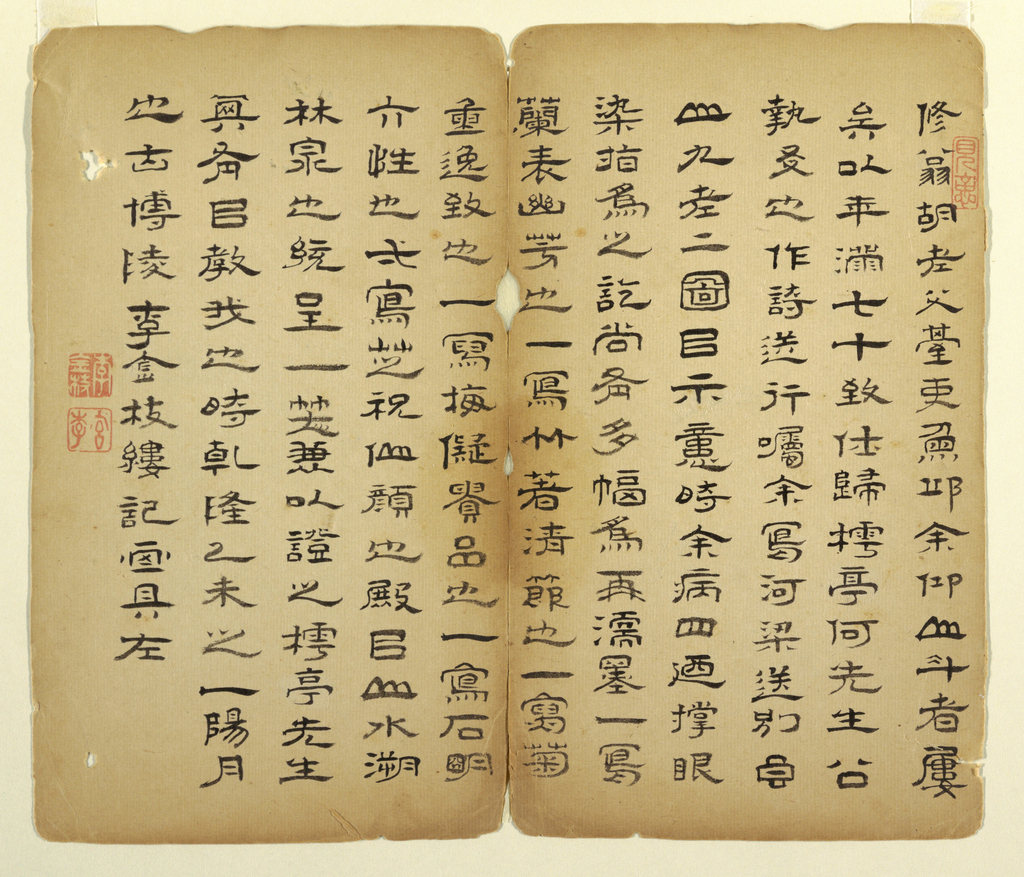 修翁胡老父臺吏魚邱余仰山斗者屢
矣以年滿七十致仕歸樗亭何先生公
執友也作詩送行囑余寫河梁送別
山九老二圖㠯示時余病四迺撐眼
染指為之訖尚多幅為再濡墨一寫
蘭表幽芳也一寫竹著清節也一寫菊
重逸致也一寫梅儗品也一寫石明
介性也弌寫芝祝仙顏也殿㠯山水溯
林泉也統呈一兼以證之樗亭先生
㠯教我也時乾隆乙未之一陽月
也古博陵李金枝縷記畫具左